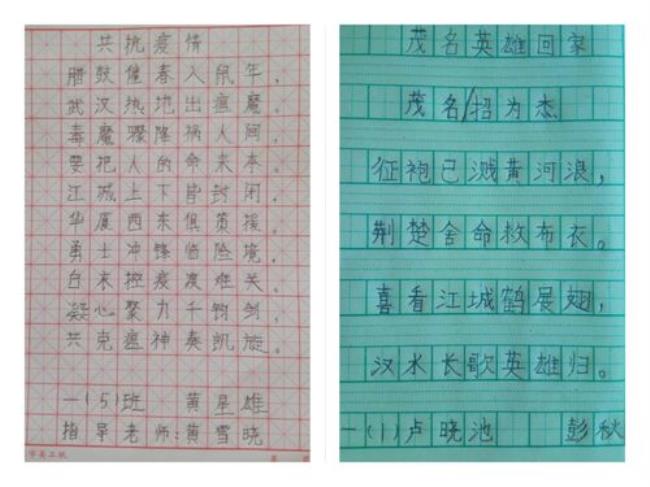 共抗疫情
腊鼓催春入鼠年,
武汉热地出瘟魔。
毒魔骤降祸人间,
要把人的命来夺。
江城上下皆封闭,
华厦西东俱贡援。
勇士冲锋临险境,
白衣控疫渡难关。
凝心聚力千钧剑,
共克瘟神奏凯旋。
一(5)班 黄星雄
指导老师:黄雪晓
茂名英雄回家
茂名/招为杰
征袍已溅黄河浪,
荆楚舍命救布衣。
喜看江城鹤展翅,
汉水长歌英雄归。
一(1)卢晓池 彭秋